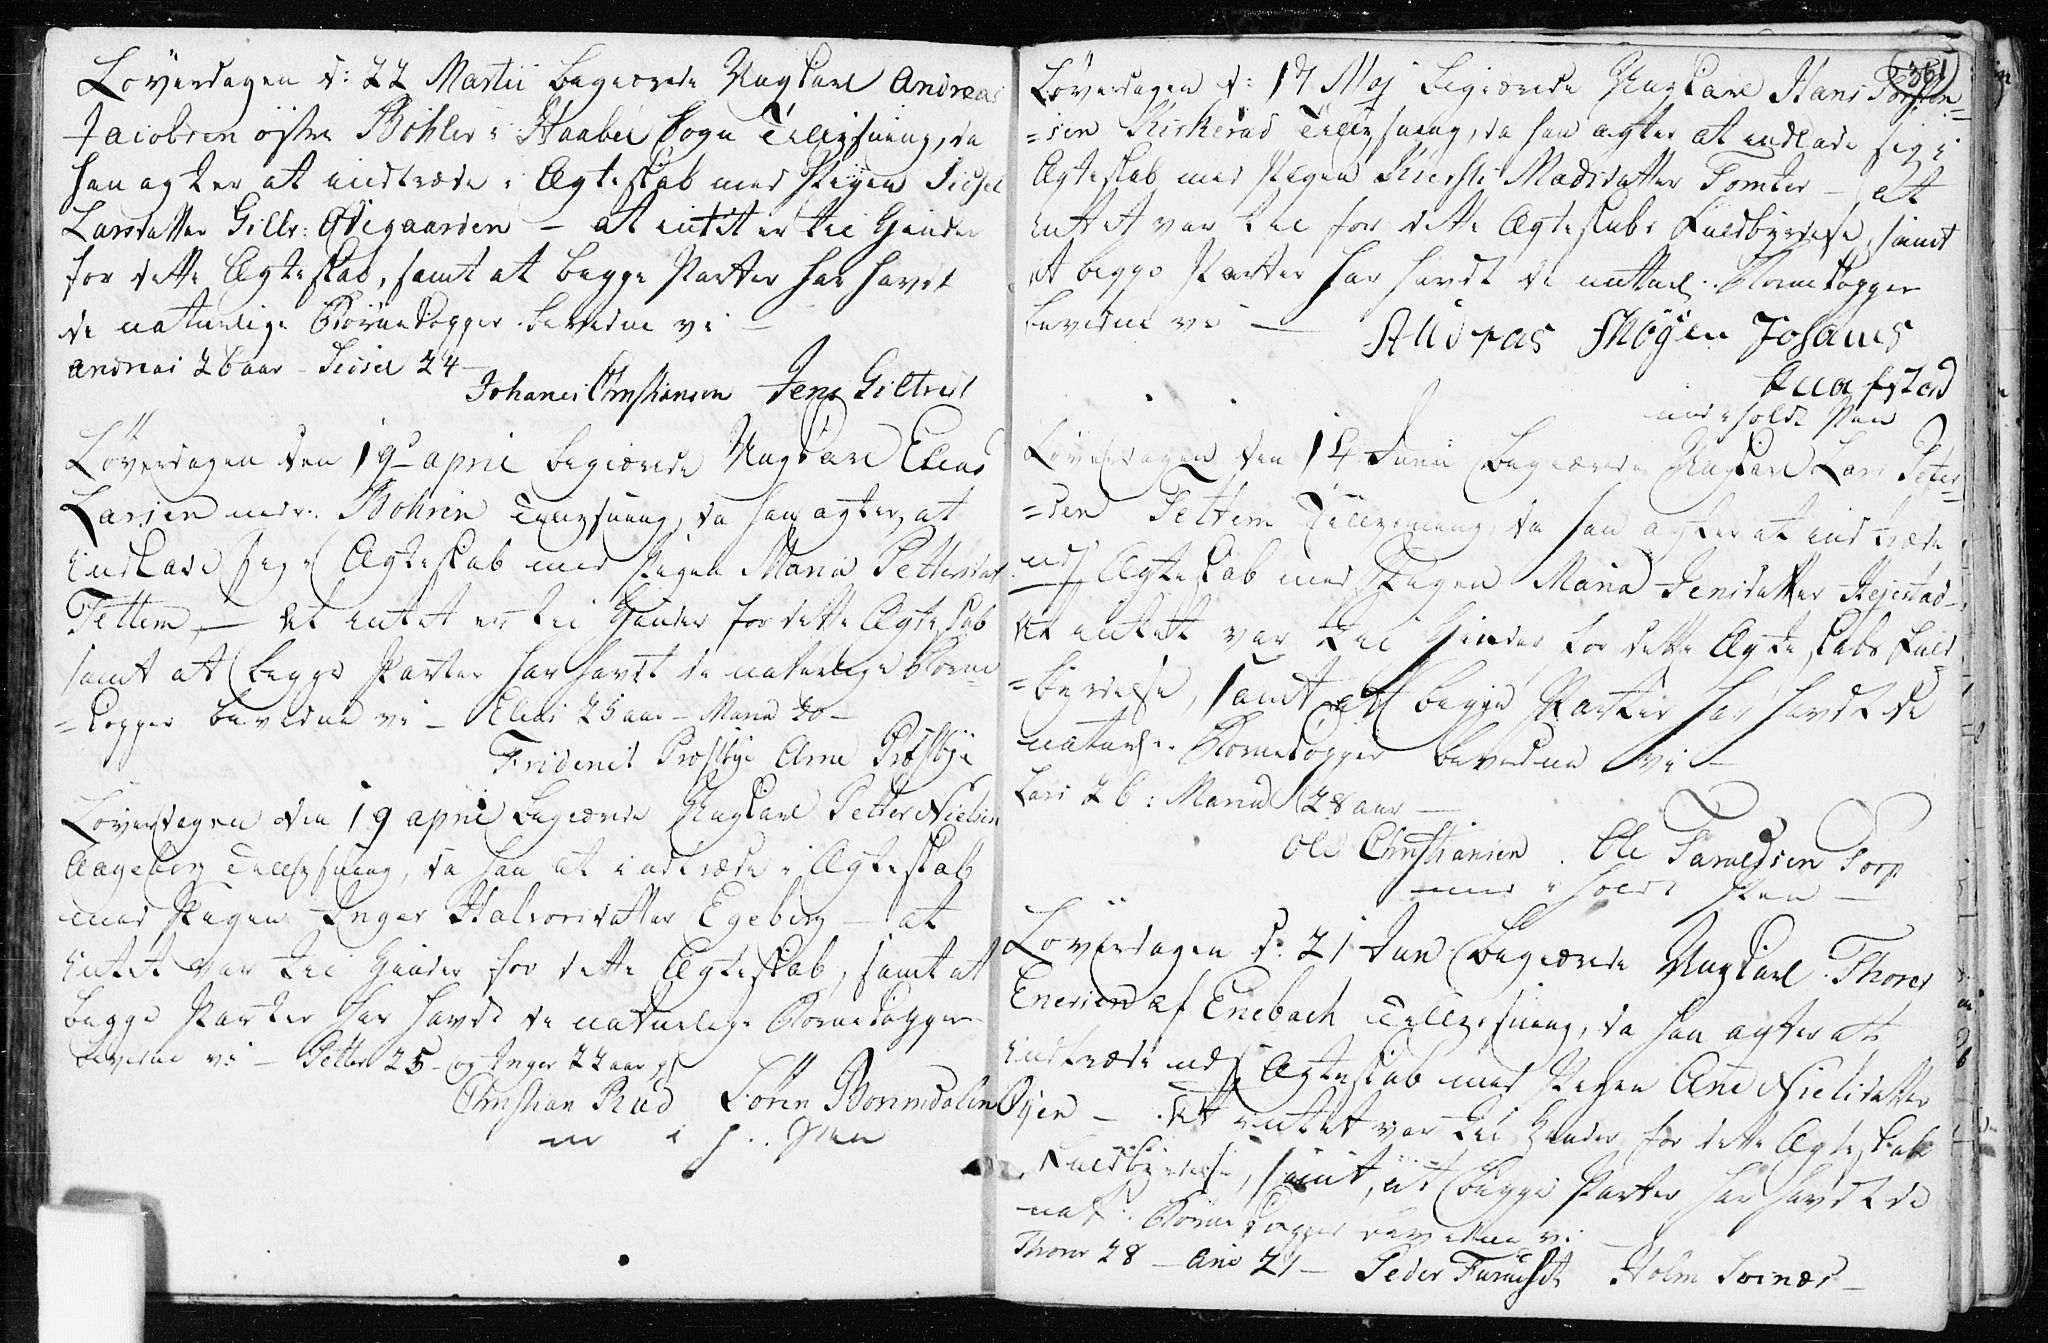 Löverdagen d: 22 Martii begierede Ungkarl Andreas
Jacobsen östre Böhler i Haabel Sogn Tillysning, da
han agter at indtræde i Ægteskab med Pigen Sidsel
Larsdatter Gillr: Ødegaarden - at intet er til Hinder
for dette Ægteskab, samt at begge Parter har havdt
de naturlige Börnekopper bevidne vi -
Andreas 26 aar - Sidsel 24 -
Johanes Christiansen Jens Giltvedt
Löverdagen den 19de april begierede Ungkarl Elias
Larsen nedr: Bohrin Tillysning, da han agter at
indlade sig i Ægteskab med Pigen Maria Pettersdat
Tettem, - At intet er til Hinder for dette Ægteskab
samt at begge Parter har havdt de naturlige Börne
=kopper bevidne vi - Elias 25 aar - Maria 20 -
Friderick Præstbye Arne Præstbye
Löverdagen den 19 april begierede Ungkarl Petter Nielsen
Aageberg Tillysning, da han at indtræde i Ægteskab
med Pigen Inger Halvorsdatter Egeberg - at
intet var til Hinder for dette Ægteskab, samt at
begge Parter har havdt de naturlige Börnekopper
bevidne vi - Petter 25 - og Inger 22 aar gl
Christian Rud Sören Bonnsdalen
m i h.. Pen
361
Löverdagen d: 17 Maj begierede Ungkarl Hans Torsten=
=sen Kirkerud Tillysning, da han agter at indlade sig i
Ægteskab med Pigen Kiersti Madsdatter Tomter - at
intet var til for dette Ægteskabs Fuldbyrdelse, samt
at begge Parter har havdt de naturl: Börnekopper
bevidne vi - Andreas Skögen Johanes
Quafstad
med i holdt Pen
Löverdagen den 14 Junii begierede Ungkarl Lars Peter=
=sen Tettem Tillysning da han agter at indtræde
udi Ægteskab med Pigen Maria Jensdatter Hejestad -
At intet var til Hinder for dette Ægteskabs Fuld
=byrdelse, samt at begge Parter har havdt de
naturl: Börnekopper bevidne vi -
Lars 26: Maria 28 aar -
Ole Christiansen . Ole Taraldsen Torp
med i holdt Pen -
Löverdagen d: 21 Jun: begierede Ungkarl Thorer
Enersen af Enebach Tillysning, da han agter at
indtræde udi Ægteskab med Pigen Ane Nielsdatter
Öjen - At intet var til Hinder for dette Ægteskabs
Fuldbyrdelse, samt, at begge Parter har havdt de
nat: Börnekopper bevidne vi
Thorer 28 - Ane 21 - Peder Furuset Holm Svinær -